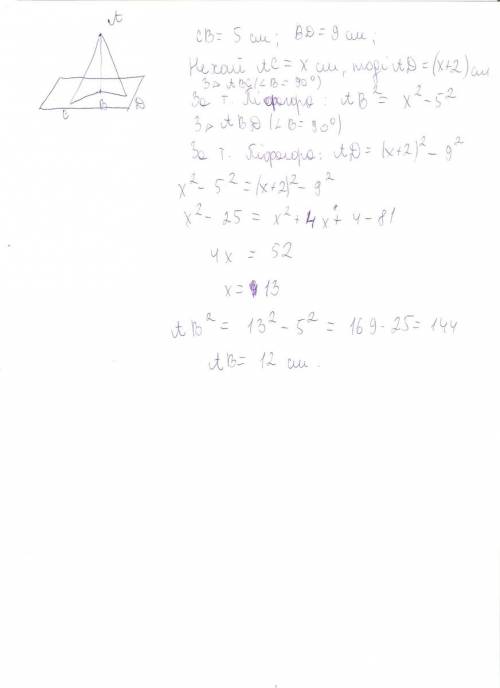 A
C B D
CB = 5 см; BD = 9 см;
Нехай AC = x см, тоді AD = (x+2) см
З △ ABC (∠B = 90°)
За т. Піфагора: AB² = x² - 5²
З △ ABD (∠B = 90°)
За т. Піфагора: AD = (x+2)² - 9²
x² - 5² = (x+2)² - 9²
x² - 25 = x² + 4x + 4 - 81
4x = 52
x = 13
AB² = 13² - 5² = 169 - 25 = 144
AB = 12 см.